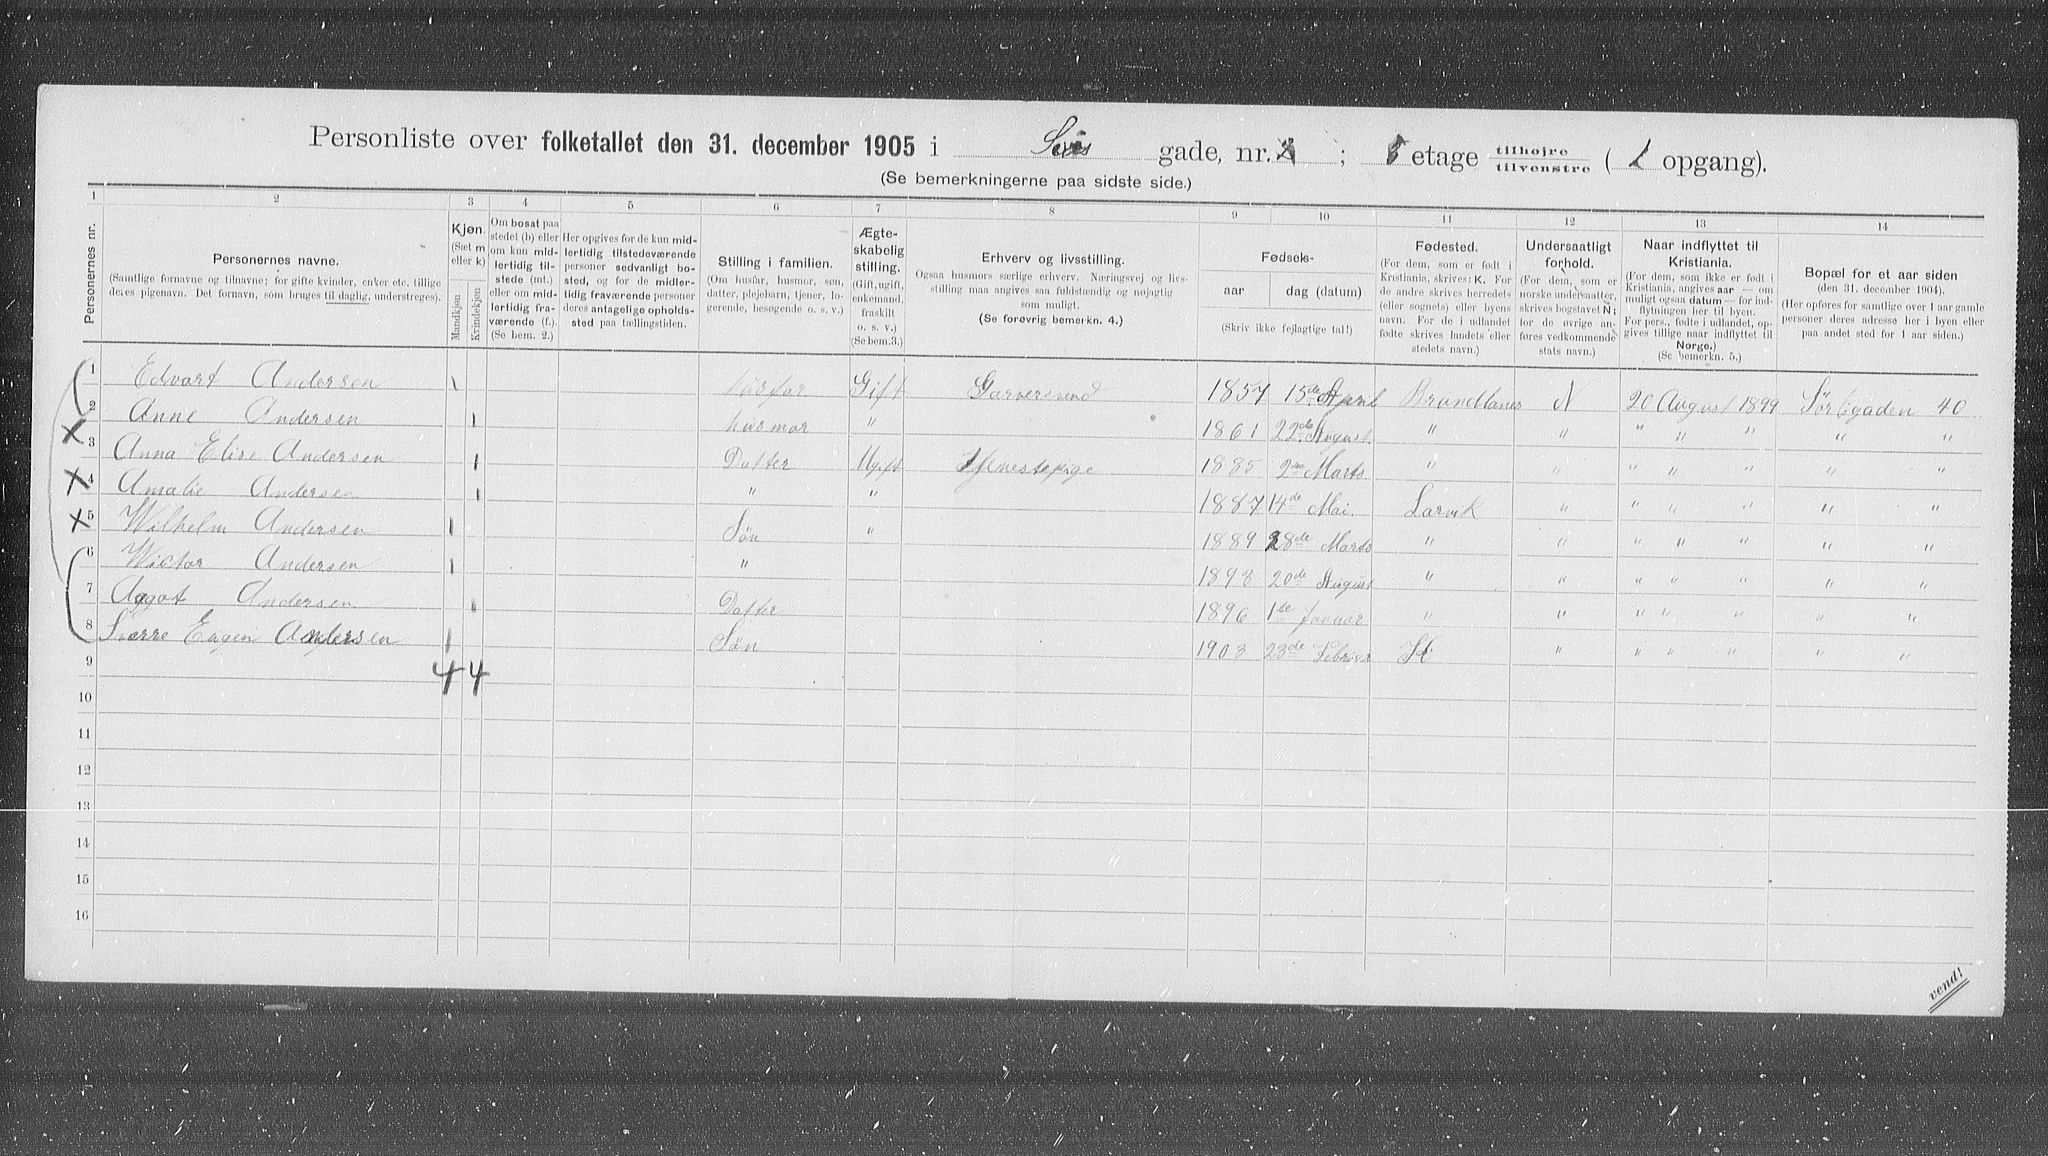 Personliste over folketallet den 31. december 1905 i Seviis gade, nr. ; 5 etage tilhøjre tilvenstre ( 1 opgang).
(Se bemerkningerne paa sidste side.)
1 2 3 4 5 6 7 8 9 10 11 12 13 14
Personernes nr.
Personernes navne.
(Samtlige fornavne og tilnavne; for gifte kvinder, enker etc. tillige deres pigenavn. Det fornavn, som bruges til daglig, understreges).
Kjøn.
(Sæt m eller k)
Mandkjøn
Kvindekjøn
Om bosat paa stedet (b) eller om kun midlertidig tilstede (mt.) eller om midlertidig fraværende (f.). (Se bem. 2.)
Her opgives for de kun midlertidig tilstedeværende personer sedvanligt bosted, og for de midlertidig fraværende personer deres antagelige opholdssted paa tællingstiden.
Stilling i familien.
(Om husfar, husmor, søn, datter, plejebarn, tjener, logerende, besøgende o. s. v.)
Ægteskabelig stilling.
(Gift, ugift, enkemand, fraskilt o. s. v.)
(Se bem.3.)
Erhverv og livsstilling.
Ogsaa husmors særlige erhverv. Næringsvej og livsstilling maa angives saa fuldstændig og nøjagtig som muligt.
(Se forøvrig bemerkn. 4.)
Fødsels-
aar dag (datum)
(Skriv ikke fejlagtige tal!)
Fødested.
(For dem, som er født i Kristiania, skrives: K. For de andre skrives herredets (eller sognets) eller byens navn. For de i udlandet fødte skrives landets eller stedets navn.)
Undersaatligt forhold.
(For dem, som er norske undersaatter, skrives bogstavet N; for de øvrige anføres vedkommende stats navn.)
Naar indflyttet til Kristiania.
(For dem, som ikke er født i Kristiania, angives aar — om muligt ogsaa datum — for indflytningen her til byen. For pers., fødte i udlandet, opgives tillige naar indflyttet til Norge.)
(Se bemerkn. 5.)
Bopæl for et aar siden
(den 31. december 1904).
(Her opføres for samtlige over 1 aar gamle personer deres adresse her i byen eller paa andet sted for 1 aar siden.)
1 Edvart Andersen 1 husfar Gift Garversvend 1857 15de April Brundlanes N 20 August 1899 Sørligaden 40
2 Anne Andersen 1 husmor " 1861 22de August " " " " " " "
3 Anna Elise Andersen 1 Datter Ugift Tjenestepige 1885 2den Marts " " " " " " "
4 Amalie Andersen 1 " " 1887 14de Mai. Larvik " " " " " "
5 Wilhelm Andersen 1 Søn " 1889 28de Marts " " " " " " "
6 Wictor Andersen 1 " 1893 20de August " " " " " " "
7 Agot Andersen 1 Datter 1896 1te Januar " " " " " " "
8 Sverre Eugen Andersen 1 Søn 1903 23de Februar K " " " " " "
9 4 4
10
11
12
13
14
15
16
vend!